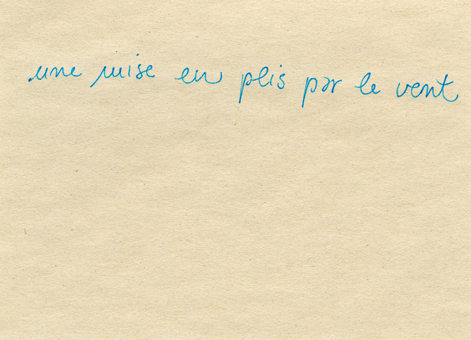 une mise en plis par le vent